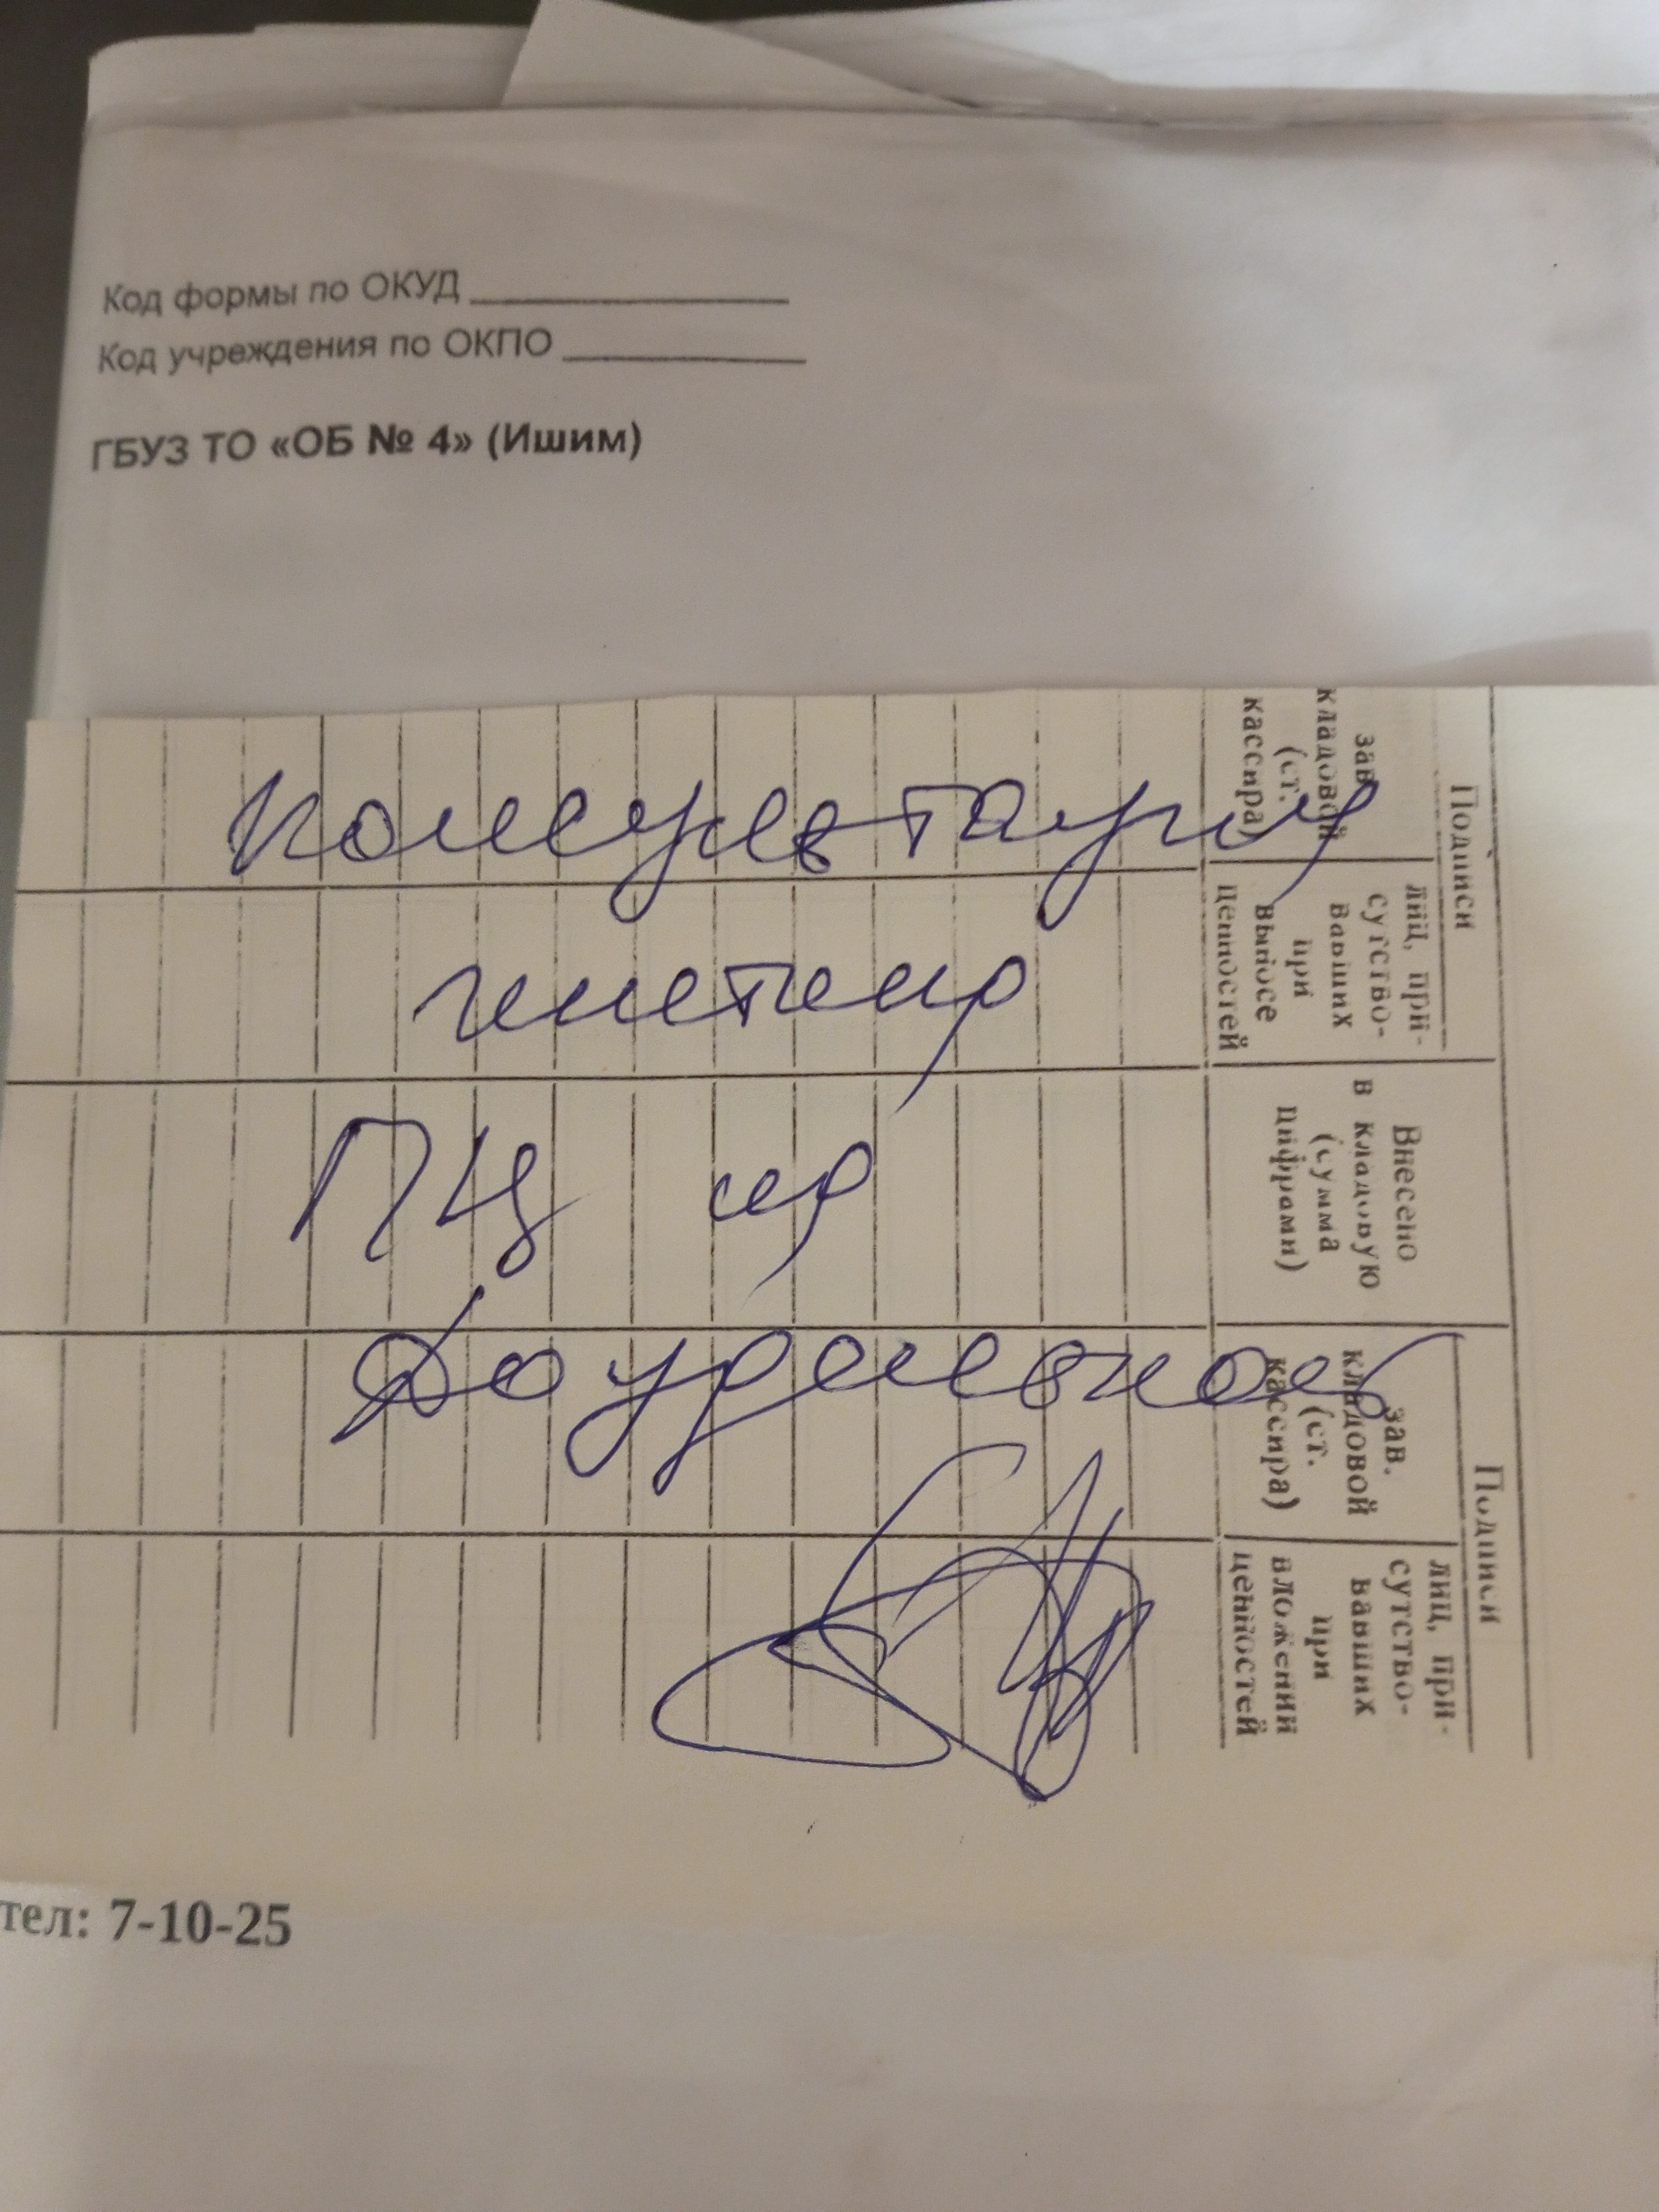 Код формы по ОКУД
Код учреждения по ОКПО
ГБУЗ ТО «ОБ № 4» (Ишим)
Консультация
генетика
ПЦ на
Даудельной
Подписи
зав. кладовой (ст. кассира)
лиц, присутство-
вавших при выносе ценностей
Внесено в кладовую (сумма цифрами)
Подписи
зав. кладовой (ст. кассира)
лиц, присутство-
вавших при вложении ценностей
тел: 7-10-25